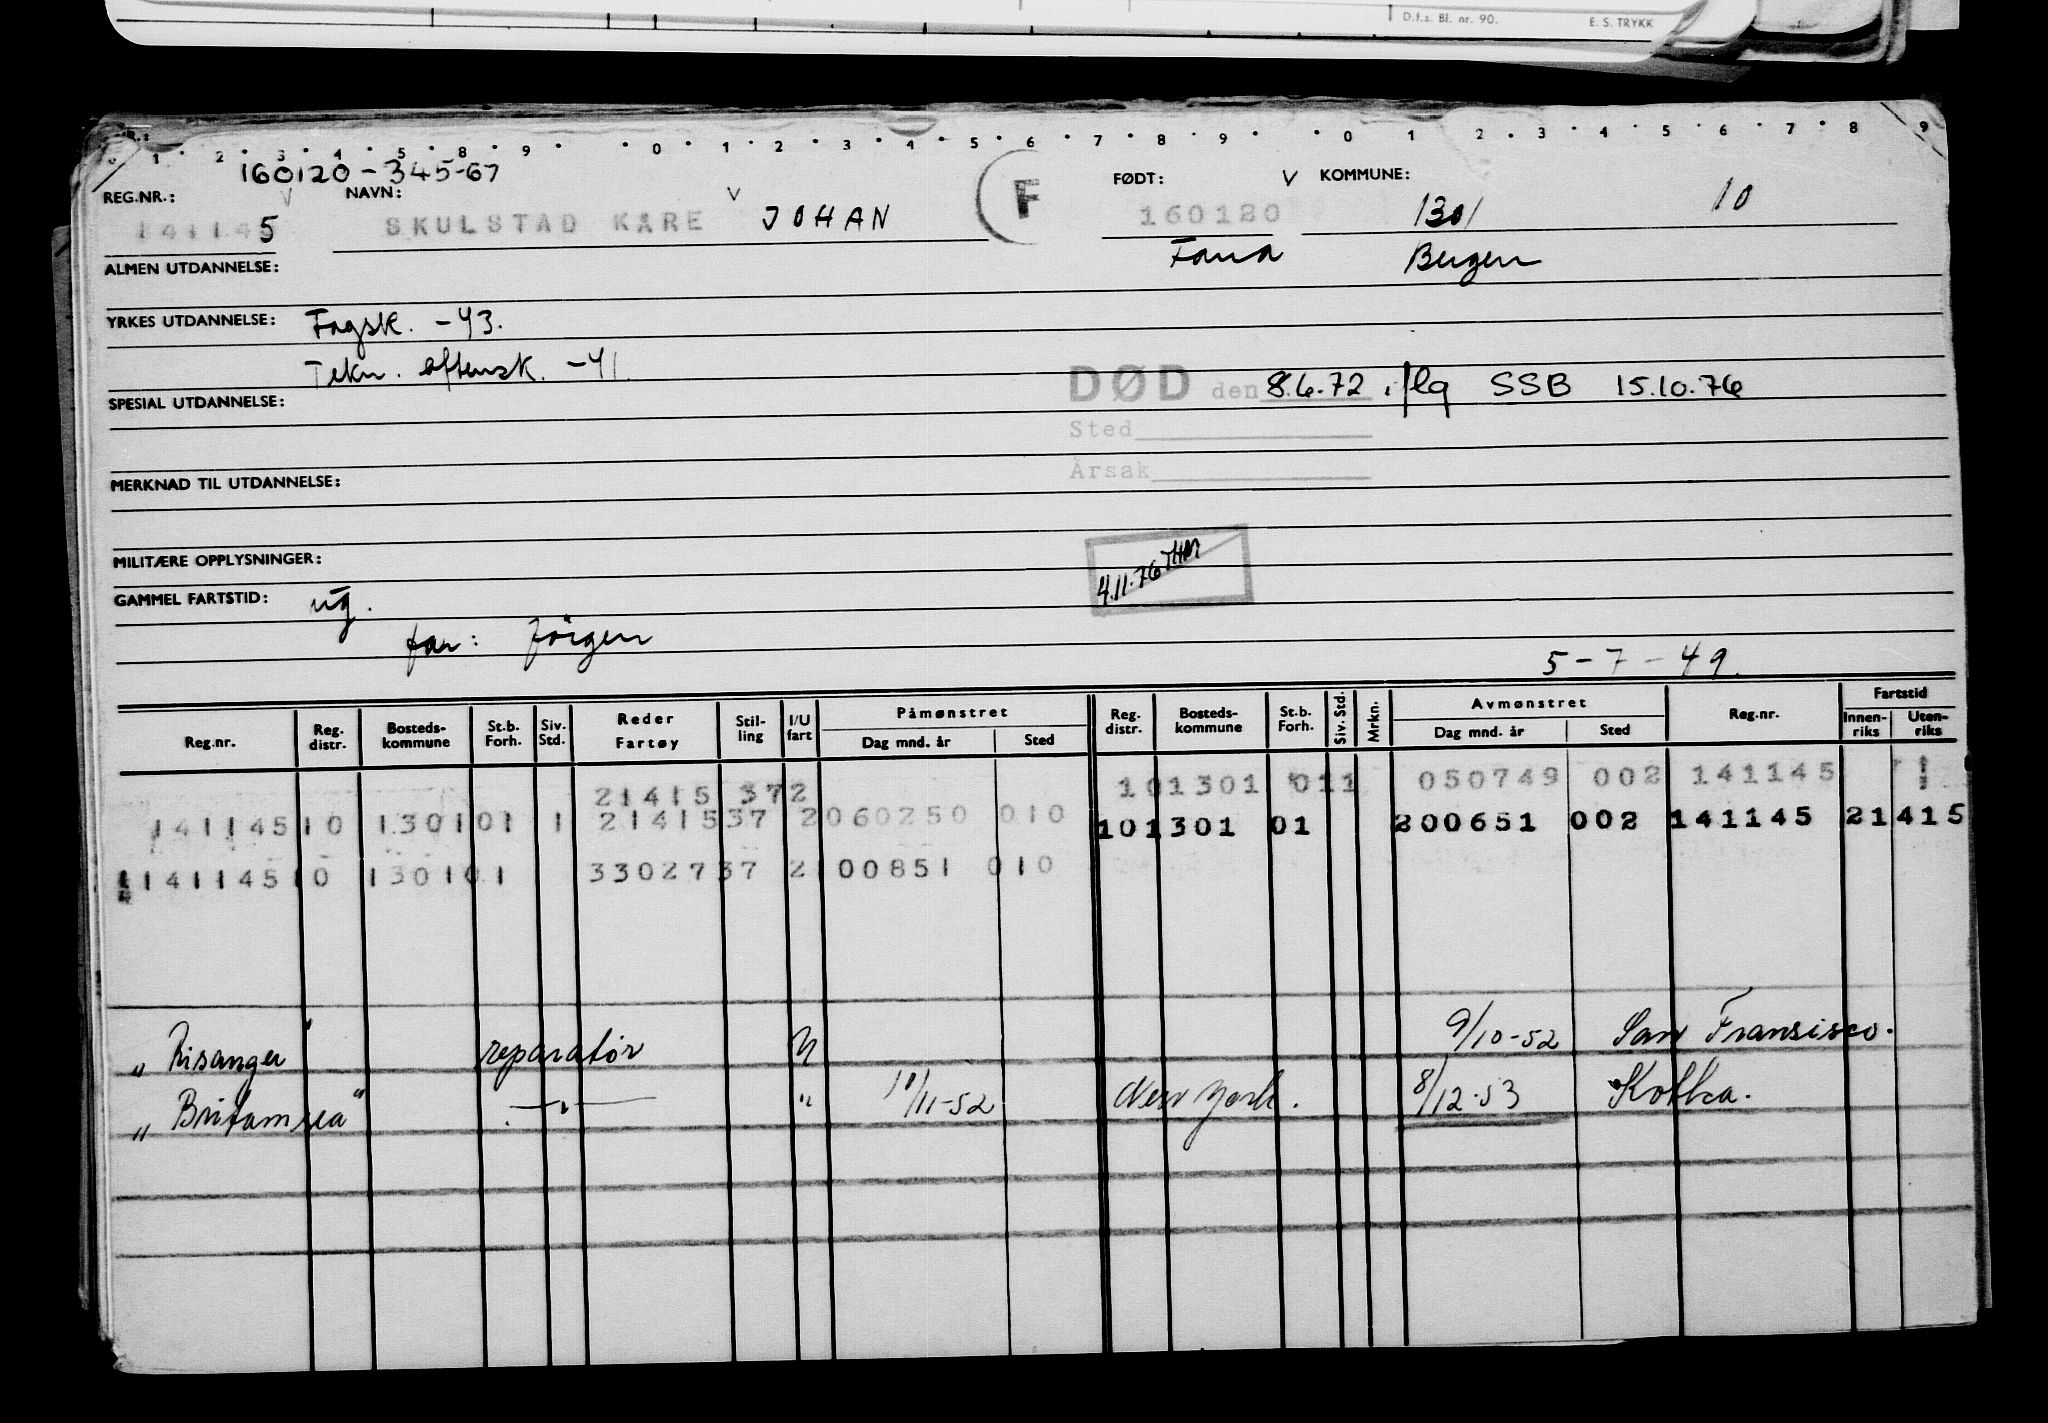 D.f.s. Bl. nr. 90. E. S. TRYKK
1 · 2 · 3 · 4 · 5 · 8 · 9 · · 0 · 1 · 2 · 3 · 4 · 5 · 6 · 7 · 8 · 9 · · 0 1 2 · 3 · 4 · 5 · 6 · 7 · 8 · 9
160120-345-67
REG.NR.: NAVN: FØDT: V KOMMUNE:
141145 SKULSTAD KARE JOHAN F 160120 1301 10
Fana Bergen
ALMEN UTDANNELSE:
YRKES UTDANNELSE: Fagsk. -43.
Tekn. aftensk. -41.
DØD den 8.6.72 iflg SSB 15.10.76
SPESIAL UTDANNELSE:
Sted
Årsak
MERKNAD TIL UTDANNELSE:
MILITÆRE OPPLYSNINGER:
4.11.76 THM
GAMMEL FARTSTID:
far: Jörgen
5-7-49.
Reg.nr. Reg. distr. Bosteds- kommune St.b. Forh. Siv. Std. Reder Fartøy Stil- ling I/U fart Påmønstret Dag mnd. år Sted Reg. distr. Bosteds- kommune St.b. Forh. Siv. Std. Mrkn. Avmønstret Dag mnd. år Sted Reg.nr. Fartstid Innen- riks Uten- riks
21415 372 101301 011 050749 002 141145
141145 10 1301 01 1 21415 37 2 060250 010 101301 01 200651 002 141145 21415
141145 10 1301 01 33027 37 2 100851 010
„ Risanger " reparatør U 9/10-52 San Fransisco.
„ Britamsea " —„— " 11/11-52 New York. 8/12-53 Kotka.